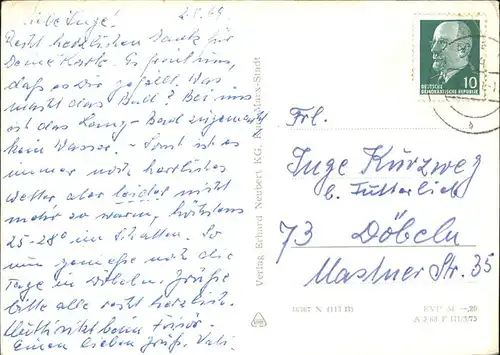 Liebe Inge! 2.8.69
Recht herzlichen Dank für
Deine Karte. Es freut uns,
daß es Dir gefällt. Was
macht das Bad? Bei uns
ist das Bad zugemacht
kein Wasser. – Sonst ist es
immer noch herrliches
Wetter, aber leider nicht
mehr so warm, höchstens
25-28° im Schatten. So
nun genieße noch die
Tage in Döbeln. Grüße
bitte alle recht herzlich.
beim
Einen lieben Gruß. Vati.
Verlag Erhard Neubert KG, Karl-Marx-Stadt
DEUTSCHE
DEMOKRATISCHE REPUBLIK
10
Frl.
Inge Kurzweg
b. Futterlieb
73 Döbeln
Mastner Str. 35
EVP M –,20